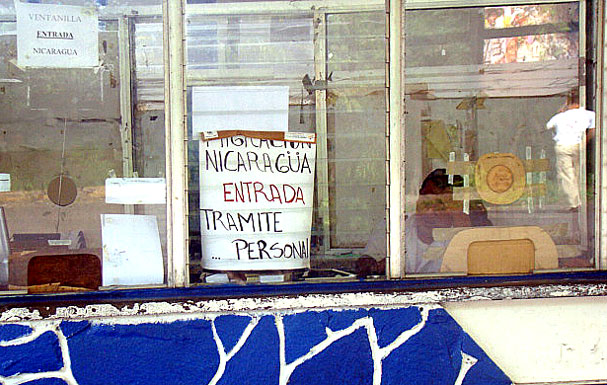 VENTANILLA
ENTRADA
NICARAGUA
MIGRACION
NICARAGÜA
ENTRADA
TRAMITE
... PERSONAL